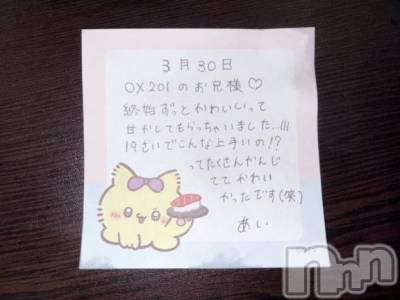 3月30日
OX201のお兄様♡
終始ずっとかわいいって
甘かしてもらっちゃいました...!!!
19さいでこんな上手いの!?
ってたくさんかんじ
ててかわい
かったです(笑)
あい
nnn